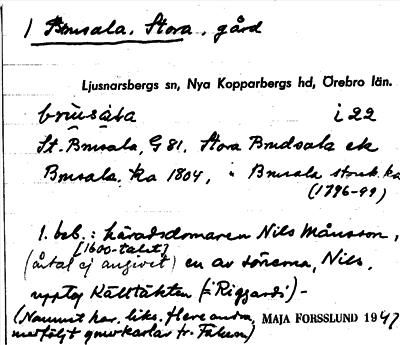 1 Brusala, Stora, gård
Ljusnarsbergs sn, Nya Kopparbergs hd, Örebro län.
brùsála i22
St. Brusala, G 81, Stora Brudsala ek
Brusala, ka 1804, Brusala storsk. ka
(1796-99)
1. beb.: häradsdomaren Nils Månsson,
[1600-talet]
(årtal ej angivet) en av sönerna, Nils,
upptog Källtäkten (i Riggards) -
(Namnet har, liks. flere andra,
medföljt gruvkarlar fr. Falun) MAJA FORSSLUND 1947